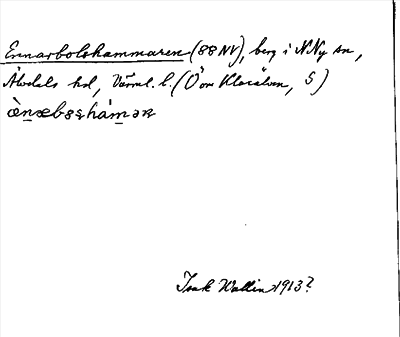 Ennarbolshammaren (88 NV), berg i N Ny sn,
Älvdals hd, Värml. l. (Ö om Klarälven, S)
ὲn̲æbọṣhám̲ən
Isak Wallin 1913?